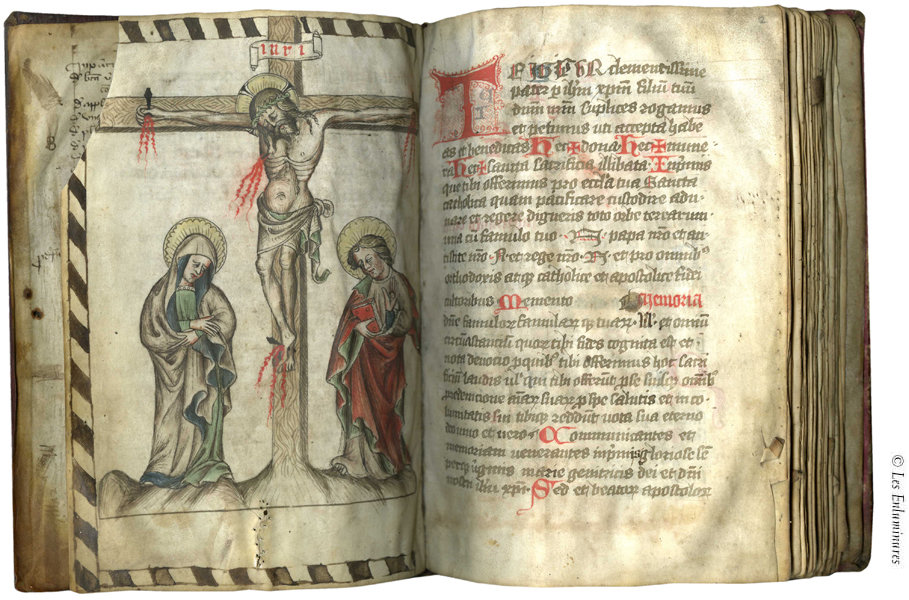 inri
2
TE IGITUR clementissime
pater p ihm xpm filiu tuu
dnm nrm suplices rogamus
et petimus uti accepta habe
as et benedicas hec + dona hec + mune
ra hec + sancta sacrificia illibata Inpmis
que tibi offerimus pro eccl'a tua sancta
catholica quam pacificare custodire adu-
nare et regere digneris toto orbe terrarum
una cu famulo tuo N papa nro et an-
tistite nro N et rege nro N et pro omnib9
orthodoxis atq catholice et apostolice fidei
cultoribus Memento Memoria
dne famulor famularq tuar N et omniu
circustanciu quor tibi fides cognita est et
nota deuocio p quib9 tibi offerimus hoc sacri
ficiu laudis ul' qui tibi offerut p se suisq omib9
p redempcione aiar suar p spe salutis et in co-
lumitatis sue tibiq reddut uota sua eterno
deo uiuo et uero Communicantes et
memoriam uenerantes inpmis gloriose se
perq uginis marie genitricis dei et dni
nostri ihu xpi Sed et beator apostolor
© Les Enluminures